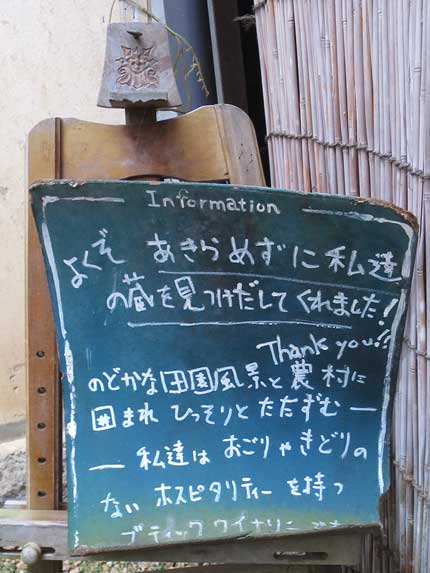 Information
よくぞ あきらめずに私達
の蔵を見つけだしてくれました!
Thank you!!
のどかな田園風景と農村に
囲まれ ひっそりとたたずむ ー
ー 私達は おごりやきどりの
ない ホスピタリティーを持つ
ブティックワイナリー